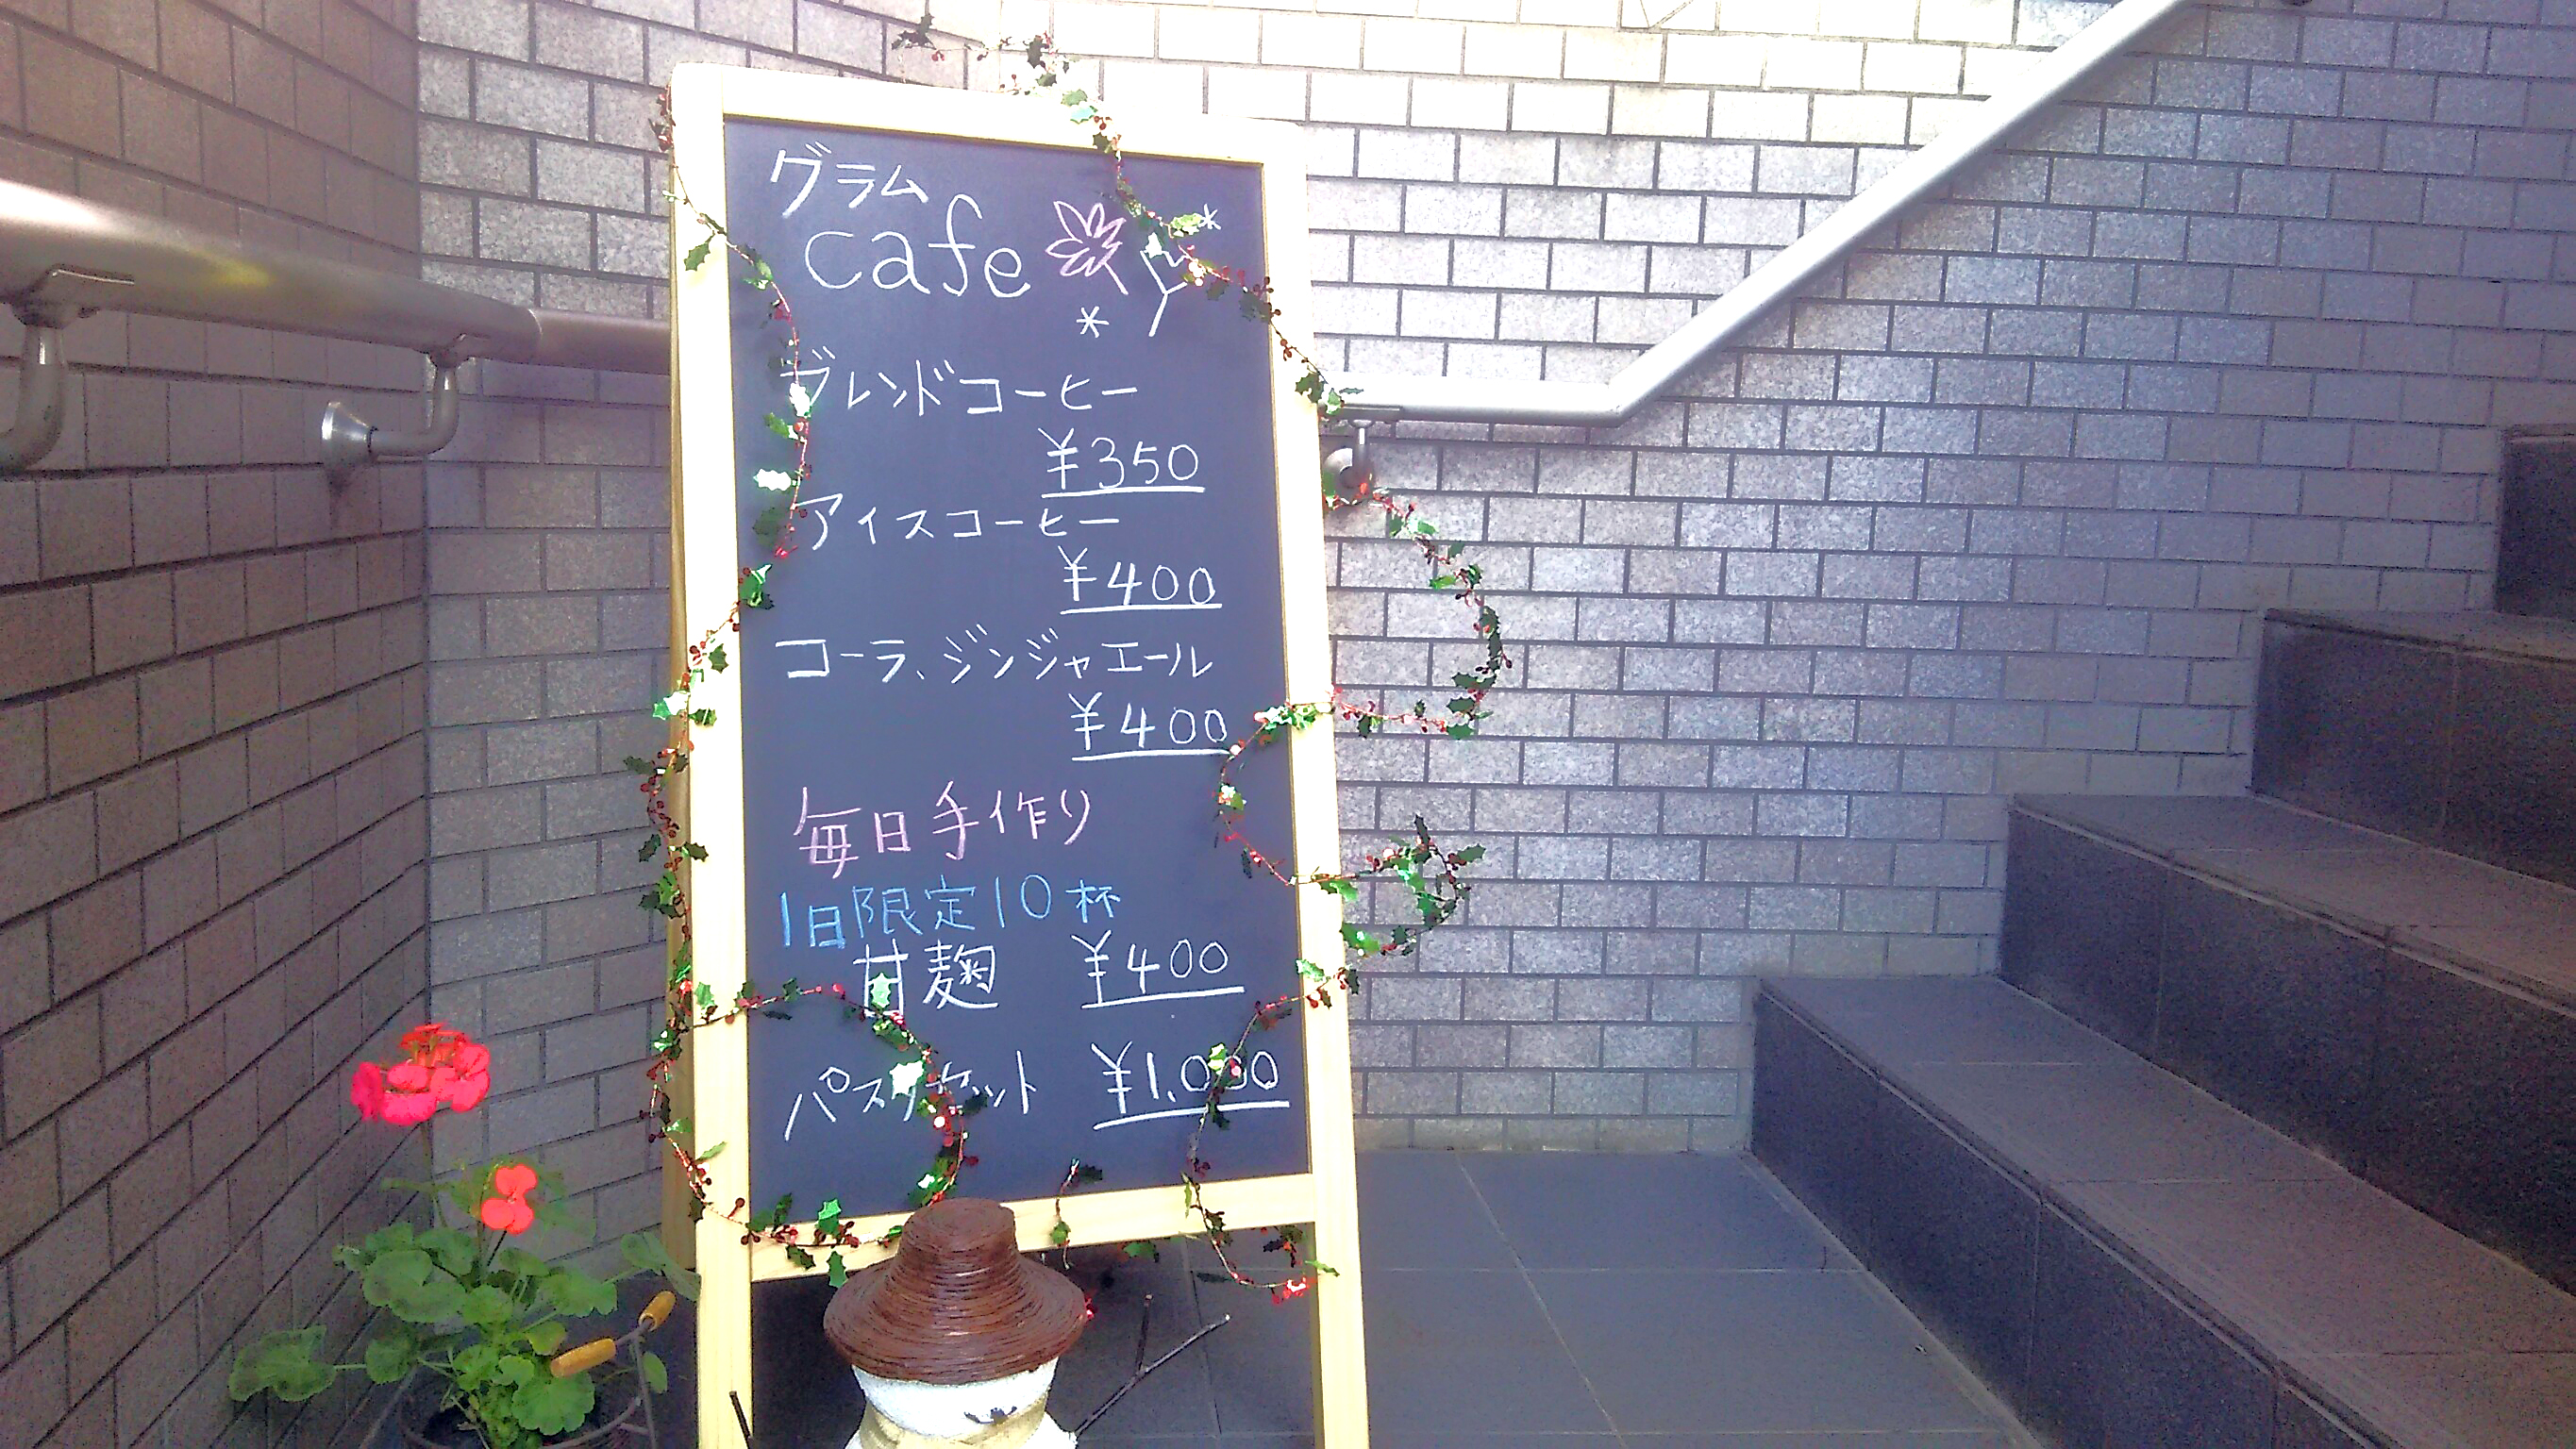 グラム
cafe
ブレンドコーヒー
¥350
アイスコーヒー
¥400
コーラ、ジンジャエール
¥400
毎日手作り
1日限定10杯
甘麹 ¥400
パスタセット ¥1,000